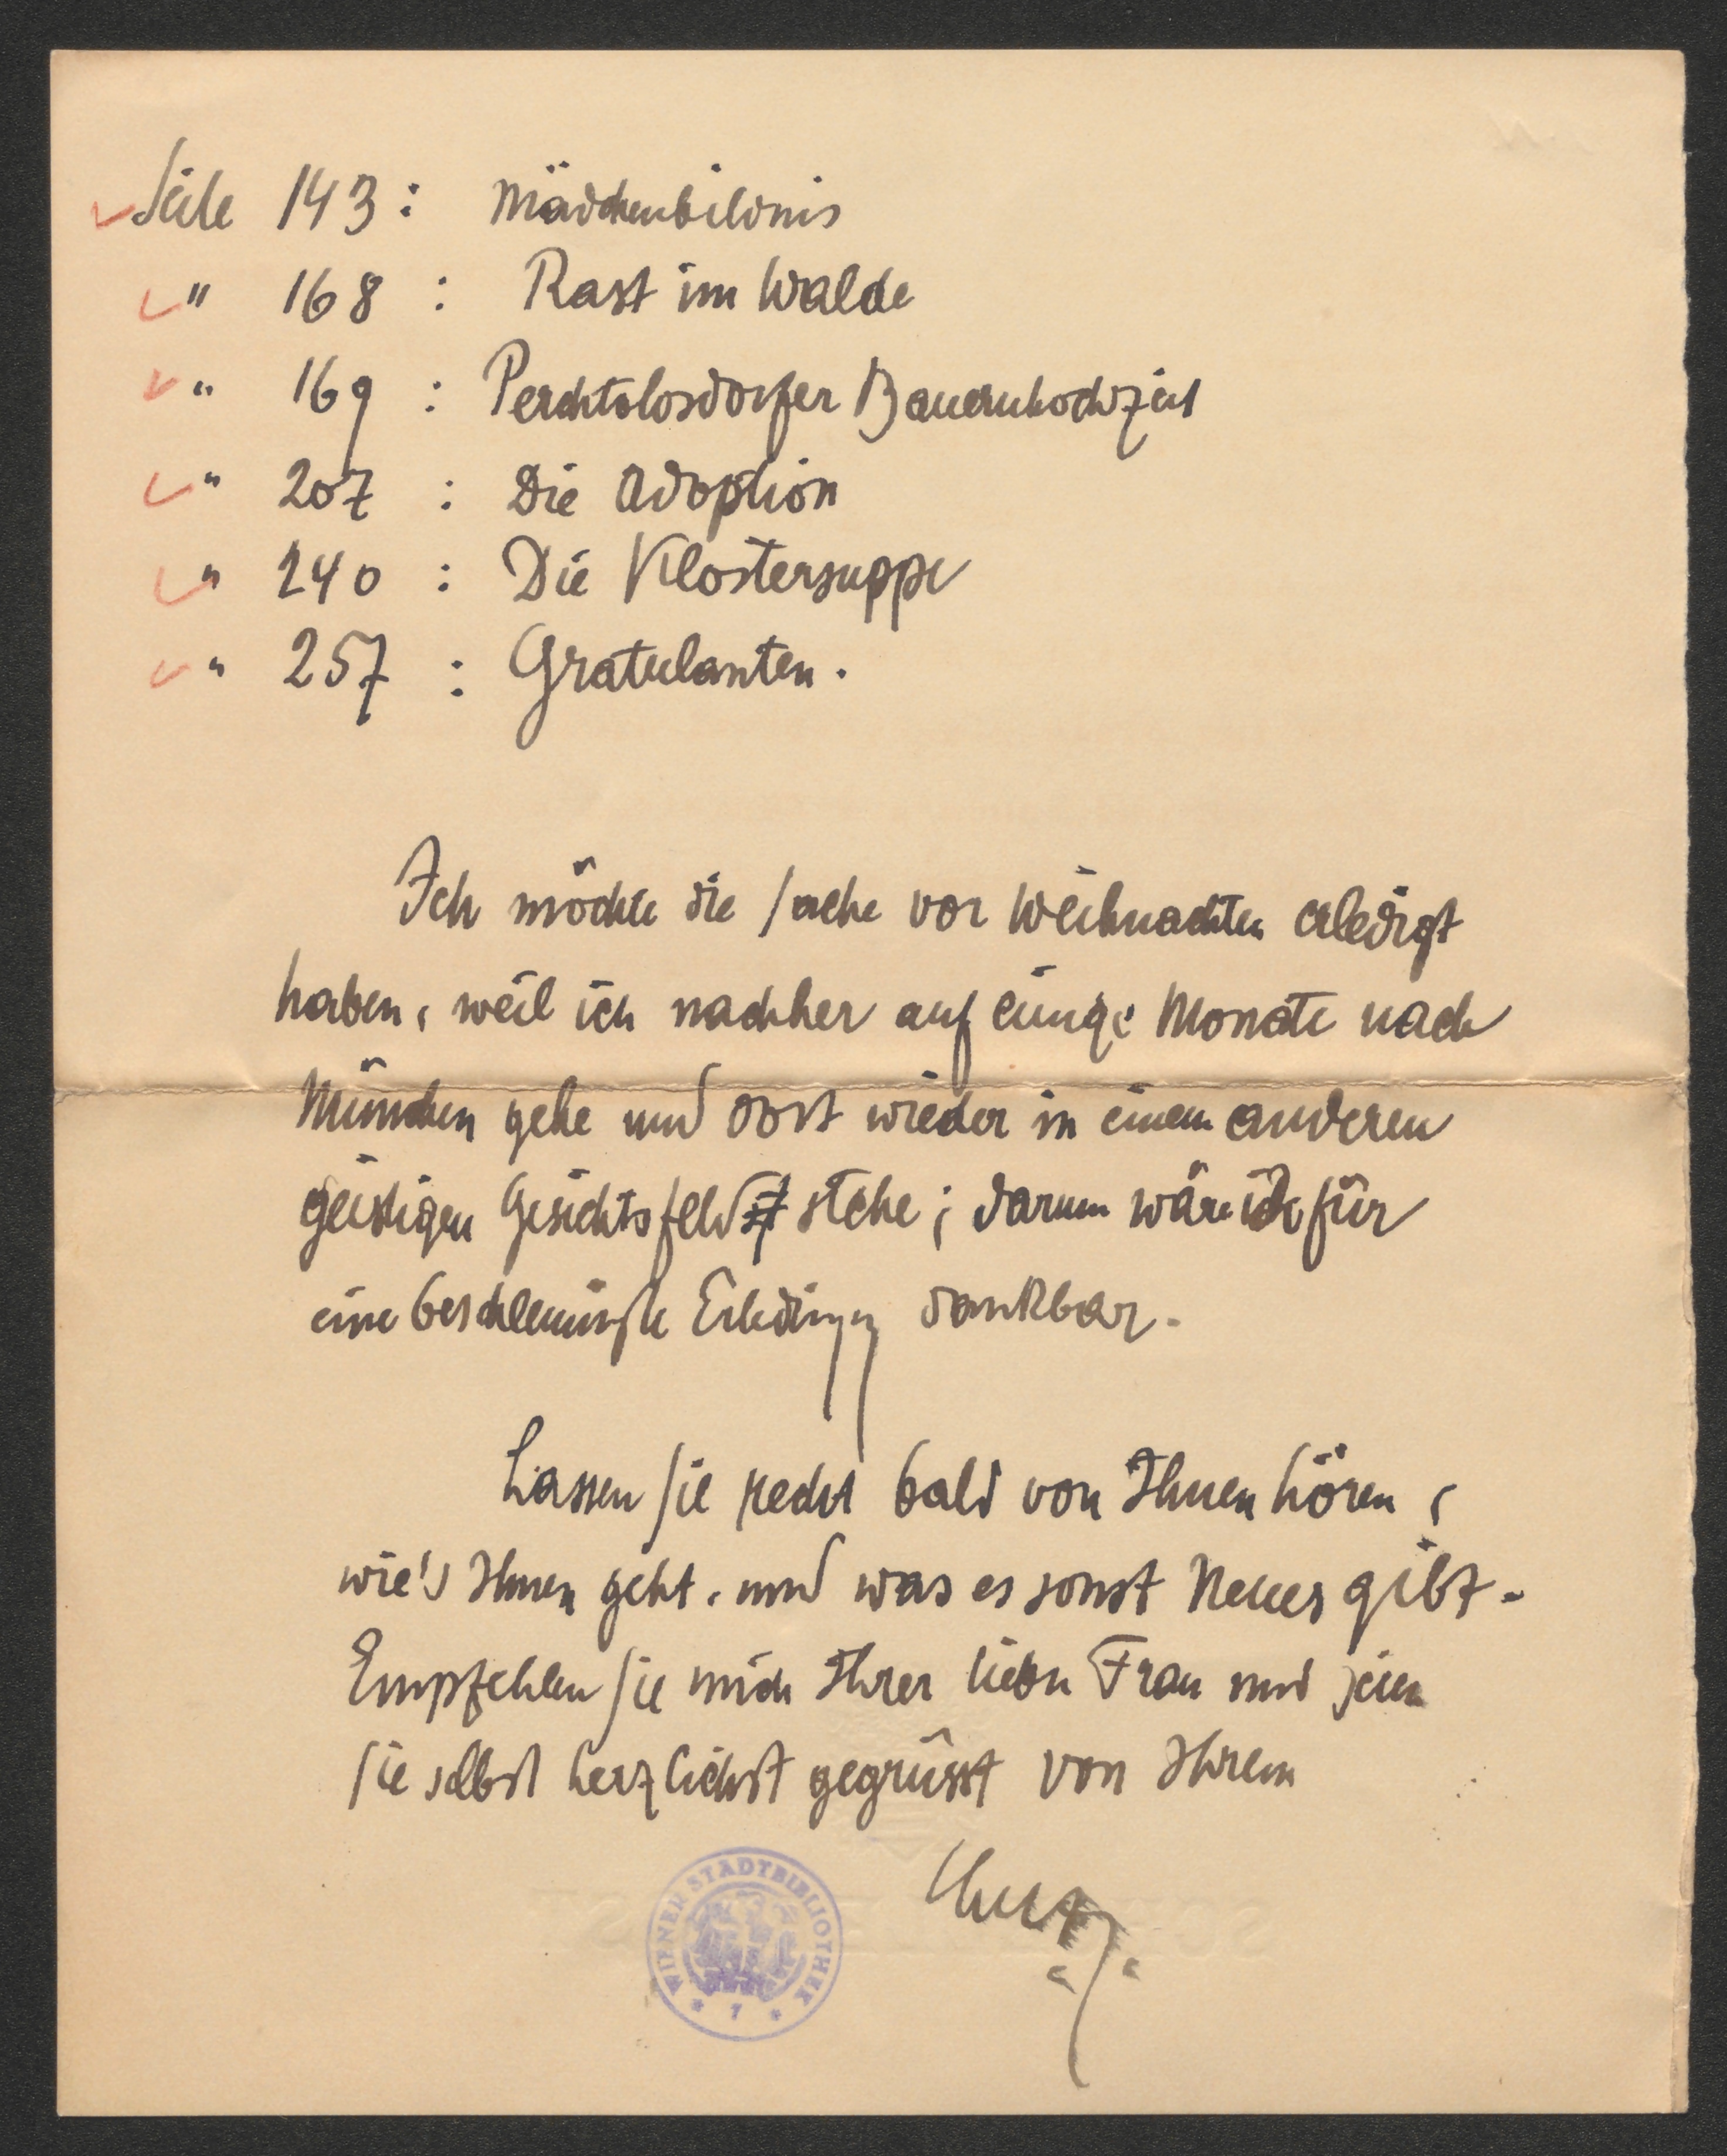 Seite 143: Mädchenbildnis
" 168 : Rast im Walde
" 169 : Perchtolosdorfer Bauernhochzeit
" 207 : Die Adoption
" 240 : Die Klostersuppe
" 257 : Gratulanten.
Ich möchte die Sache vor Weihnachten erledigt
haben, weil ich nachher auf einige Monate nach
München gehe und dort wieder in einem anderen
geistigen Gesichtsfeld stehe; darum wäre ich für
eine beschleunigte Erledigung dankbar.
Lassen Sie recht bald von Ihnen hören,
wie's Ihnen geht, und was es sonst Neues gibt.
Empfehlen Sie mich Ihrer lieben Frau und seien
Sie selbst herzlichst gegrüsst von Ihrem
WIENER STADTBIBLIOTHEK
* 7 *